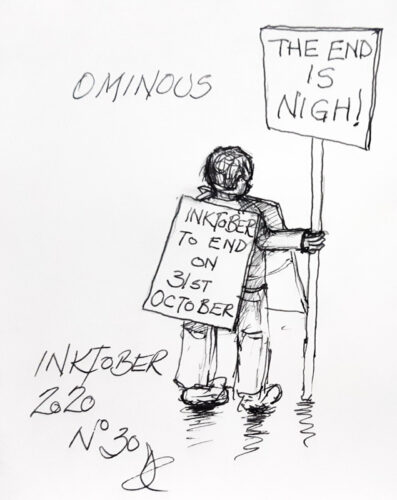 OMINOUS
THE END
IS
NIGH!
INKTOBER
TO END
ON
31ST
OCTOBER
INKTOBER
2020
Nº 30